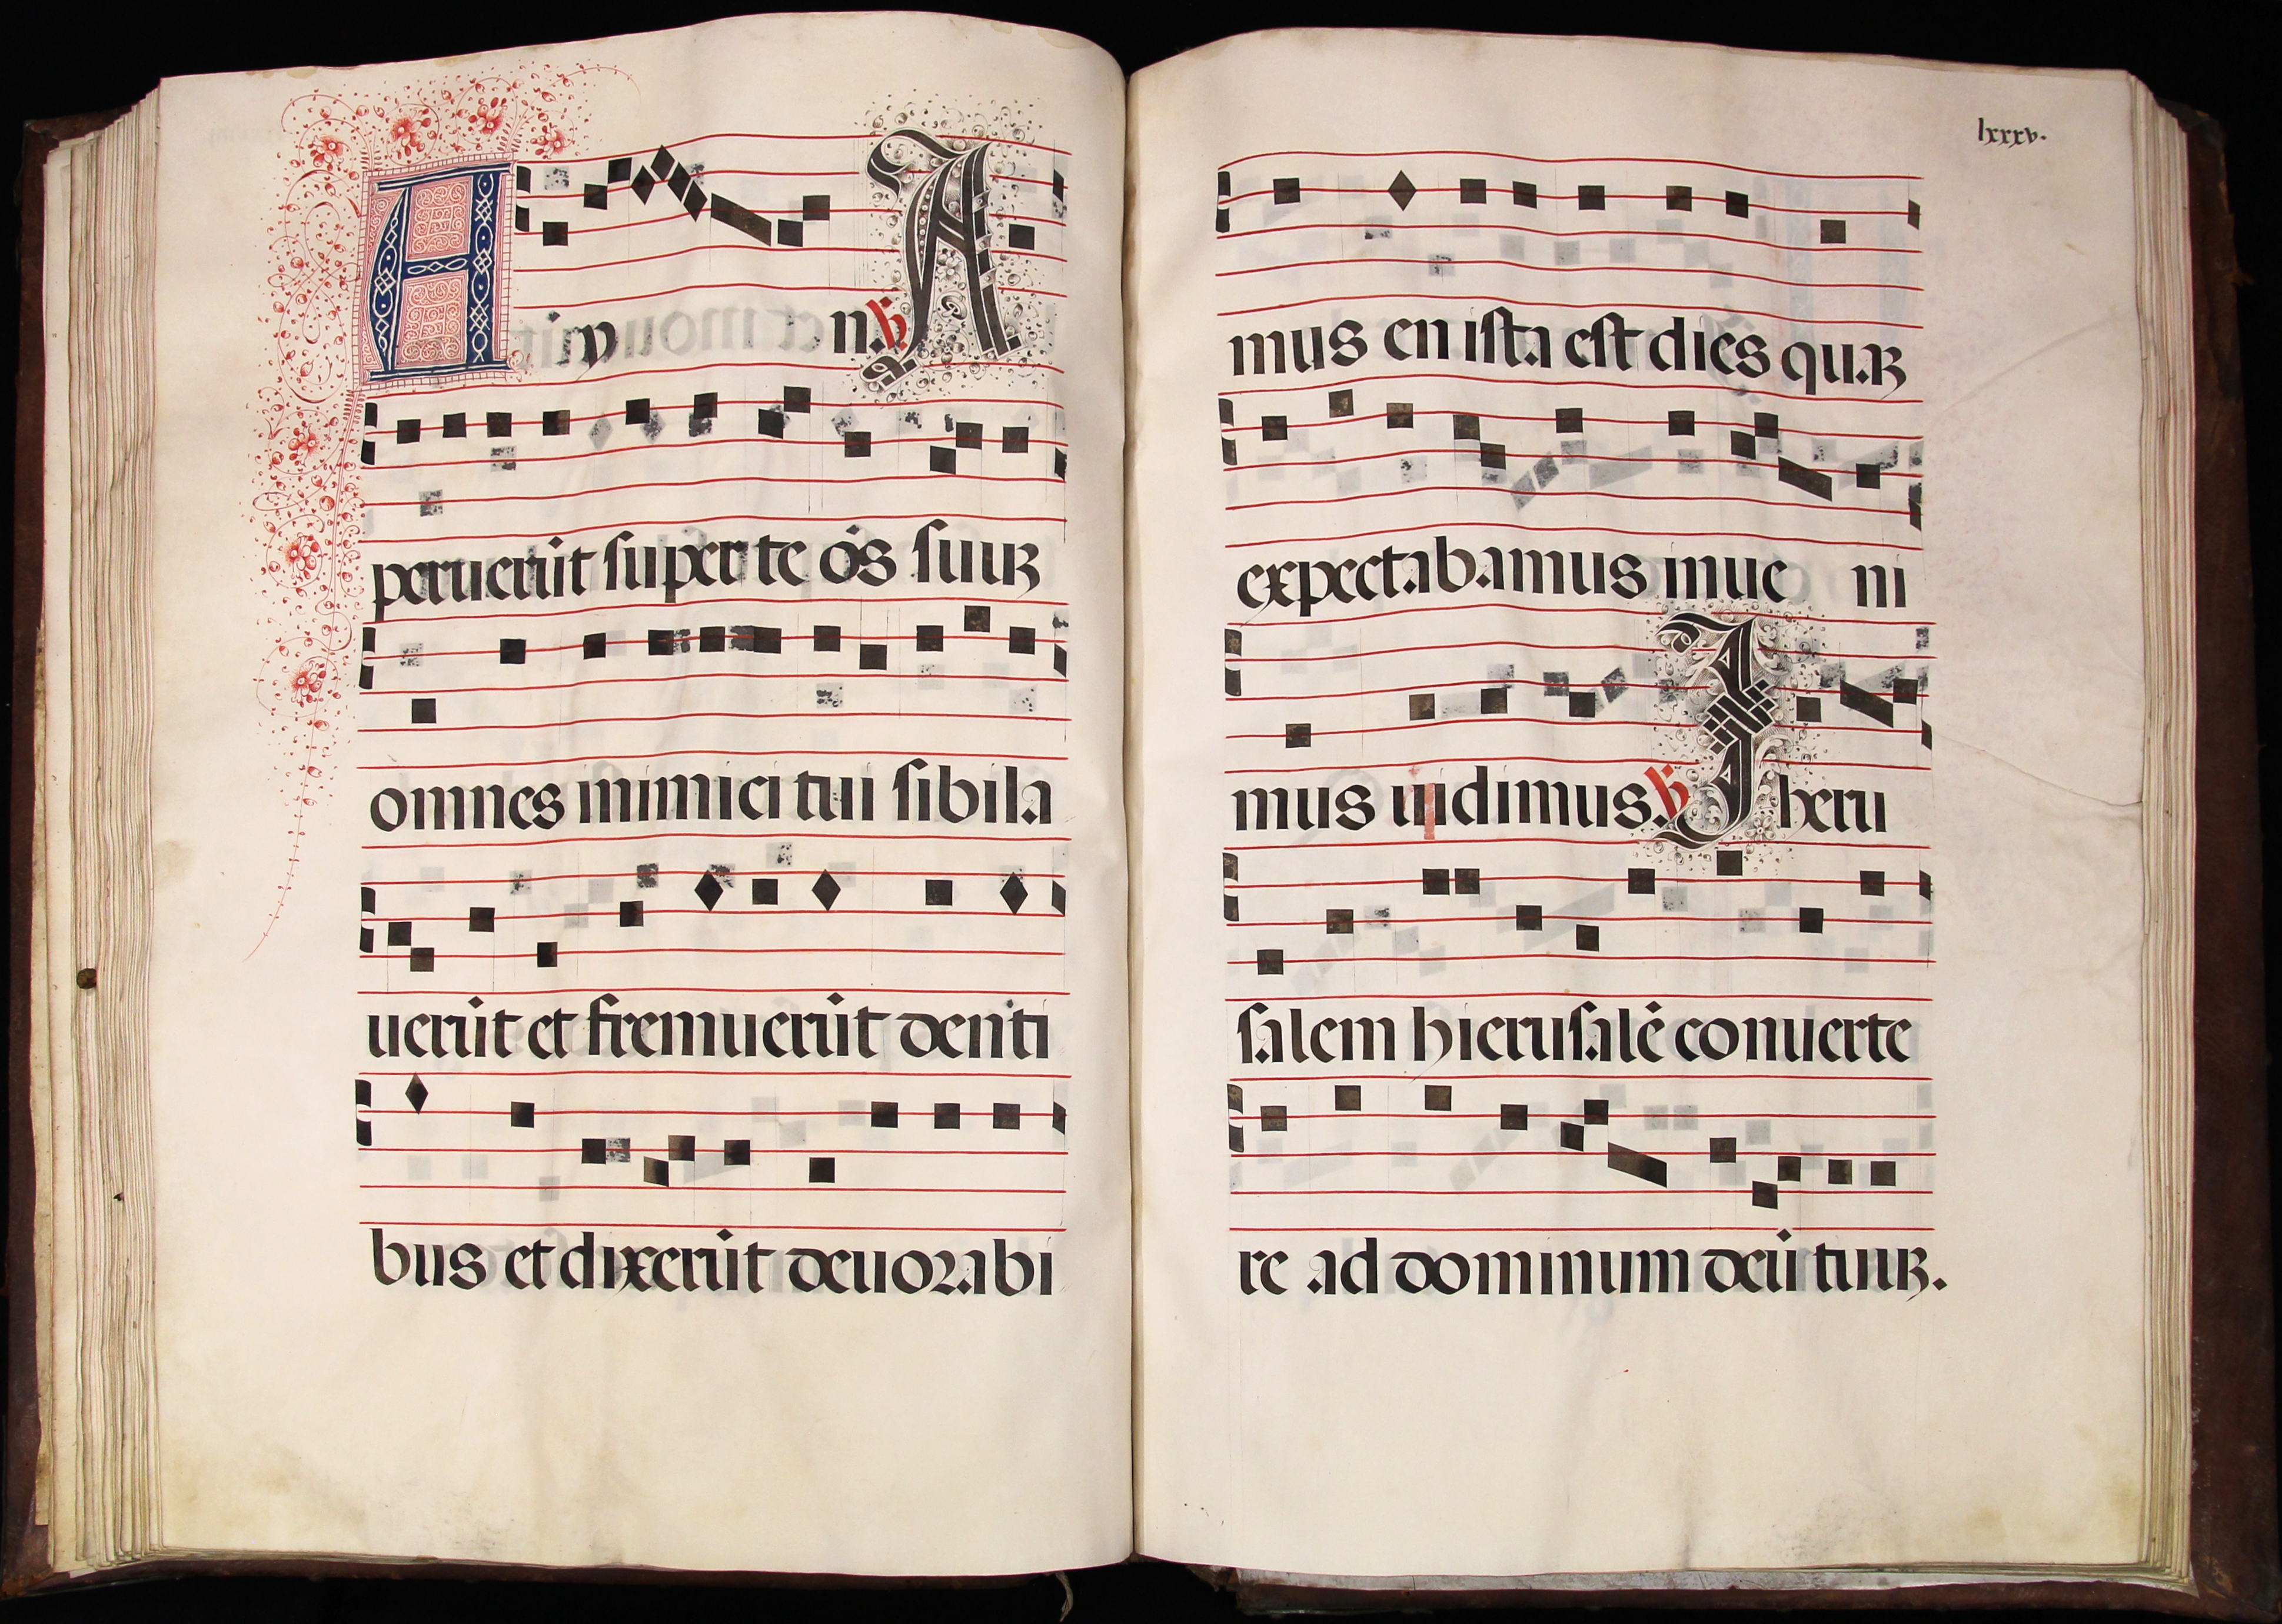 Ayn. ℣ A
peruerūt super te ós suuꝫ
omnes inimici tui sibila
uerūt et fremuerūt denti
bus et dixerūt deuorabi
lxxxv.
mus en ista est dies quaꝫ
expectabamus inue ni
mus uidimus. ℣ Iheru
salem hierusalē conuerte
re ad dominum deū tuuꝫ.